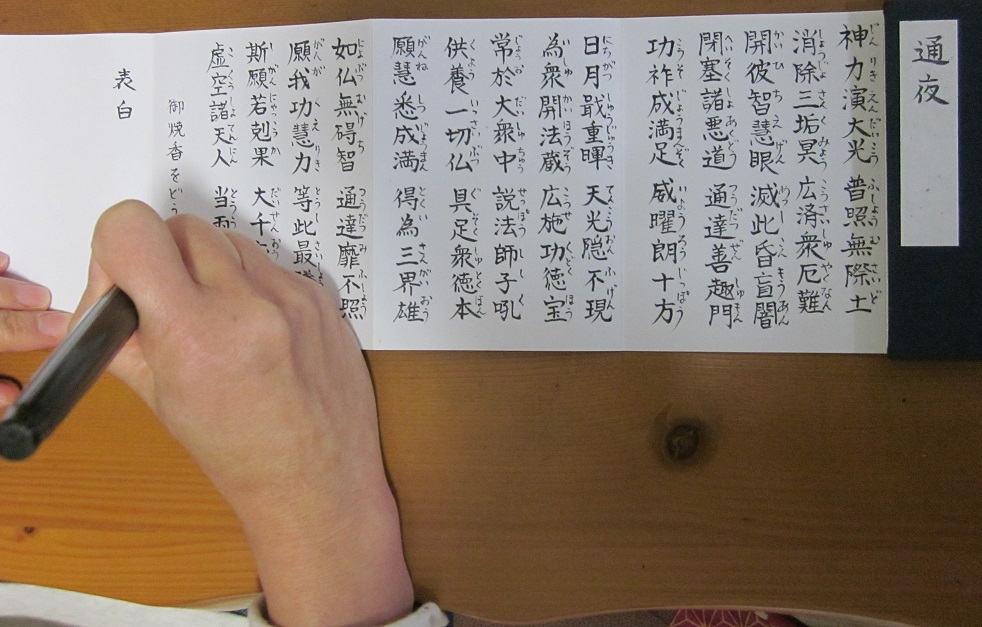 通夜
神力演大光 普照無際土
消除三垢冥 広済衆厄難
開彼智慧眼 滅此昏盲闇
閉塞諸悪道 通達善趣門
功祚成満足 威曜朗十方
日月戢重暉 天光隠不現
為衆開法蔵 広施功徳宝
常於大衆中 説法師子吼
供養一切仏 具足衆徳本
願慧悉成満 得為三界雄
如仏無碍智 通達靡不照
願我功慧力 等此最
斯願若剋果 大千
虚空諸天人 当
御焼香をどう
表白